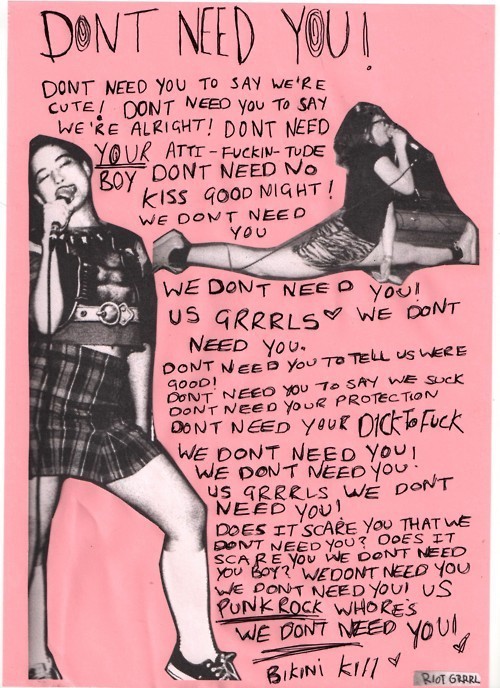 DONT NEED YOU!
DONT NEED YOU TO SAY WE'RE
CUTE! DONT NEED YOU TO SAY
WE'RE ALRIGHT! DONT NEED
YOUR ATTI-FUCKIN-TUDE
BOY DONT NEED NO
KISS GOODNIGHT!
WE DONT NEED
YOU
WE DONT NEED YOU!
US GRRRLS ♡ WE DONT
NEED YOU.
DONT NEED YOU TO TELL US WERE
GOOD!
DONT NEED YOU TO SAY WE SUCK
DONT NEED YOUR PROTECTION
DONT NEED YOUR DICK TO FUCK
WE DONT NEED YOU!
WE DONT NEED YOU.
US GRRRLS WE DONT
NEED YOU!
DOES IT SCARE YOU THAT WE
DONT NEED YOU? DOES IT
SCARE YOU WE DONT NEED
YOU BOY? WE DONT NEED YOU
WE DONT NEED YOU! US
PUNK ROCK WHORE'S
WE DONT NEED YOU!
BIKINI KILL ♡
RIOT GRRRL